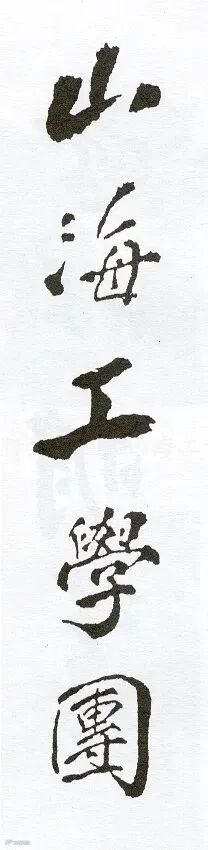 山海工學團